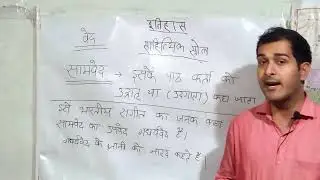 इतिहास
वेद
साहित्यिक स्रोत
सामवेद → इसके पाठ कर्ता को
उद्गाता या (उदगाता) कहा जाता
इसे भारतीय संगीत का जनक कहा
सामवेद का उपवेद गन्धर्ववेद है।
के ज्ञानी को नारद कहते है